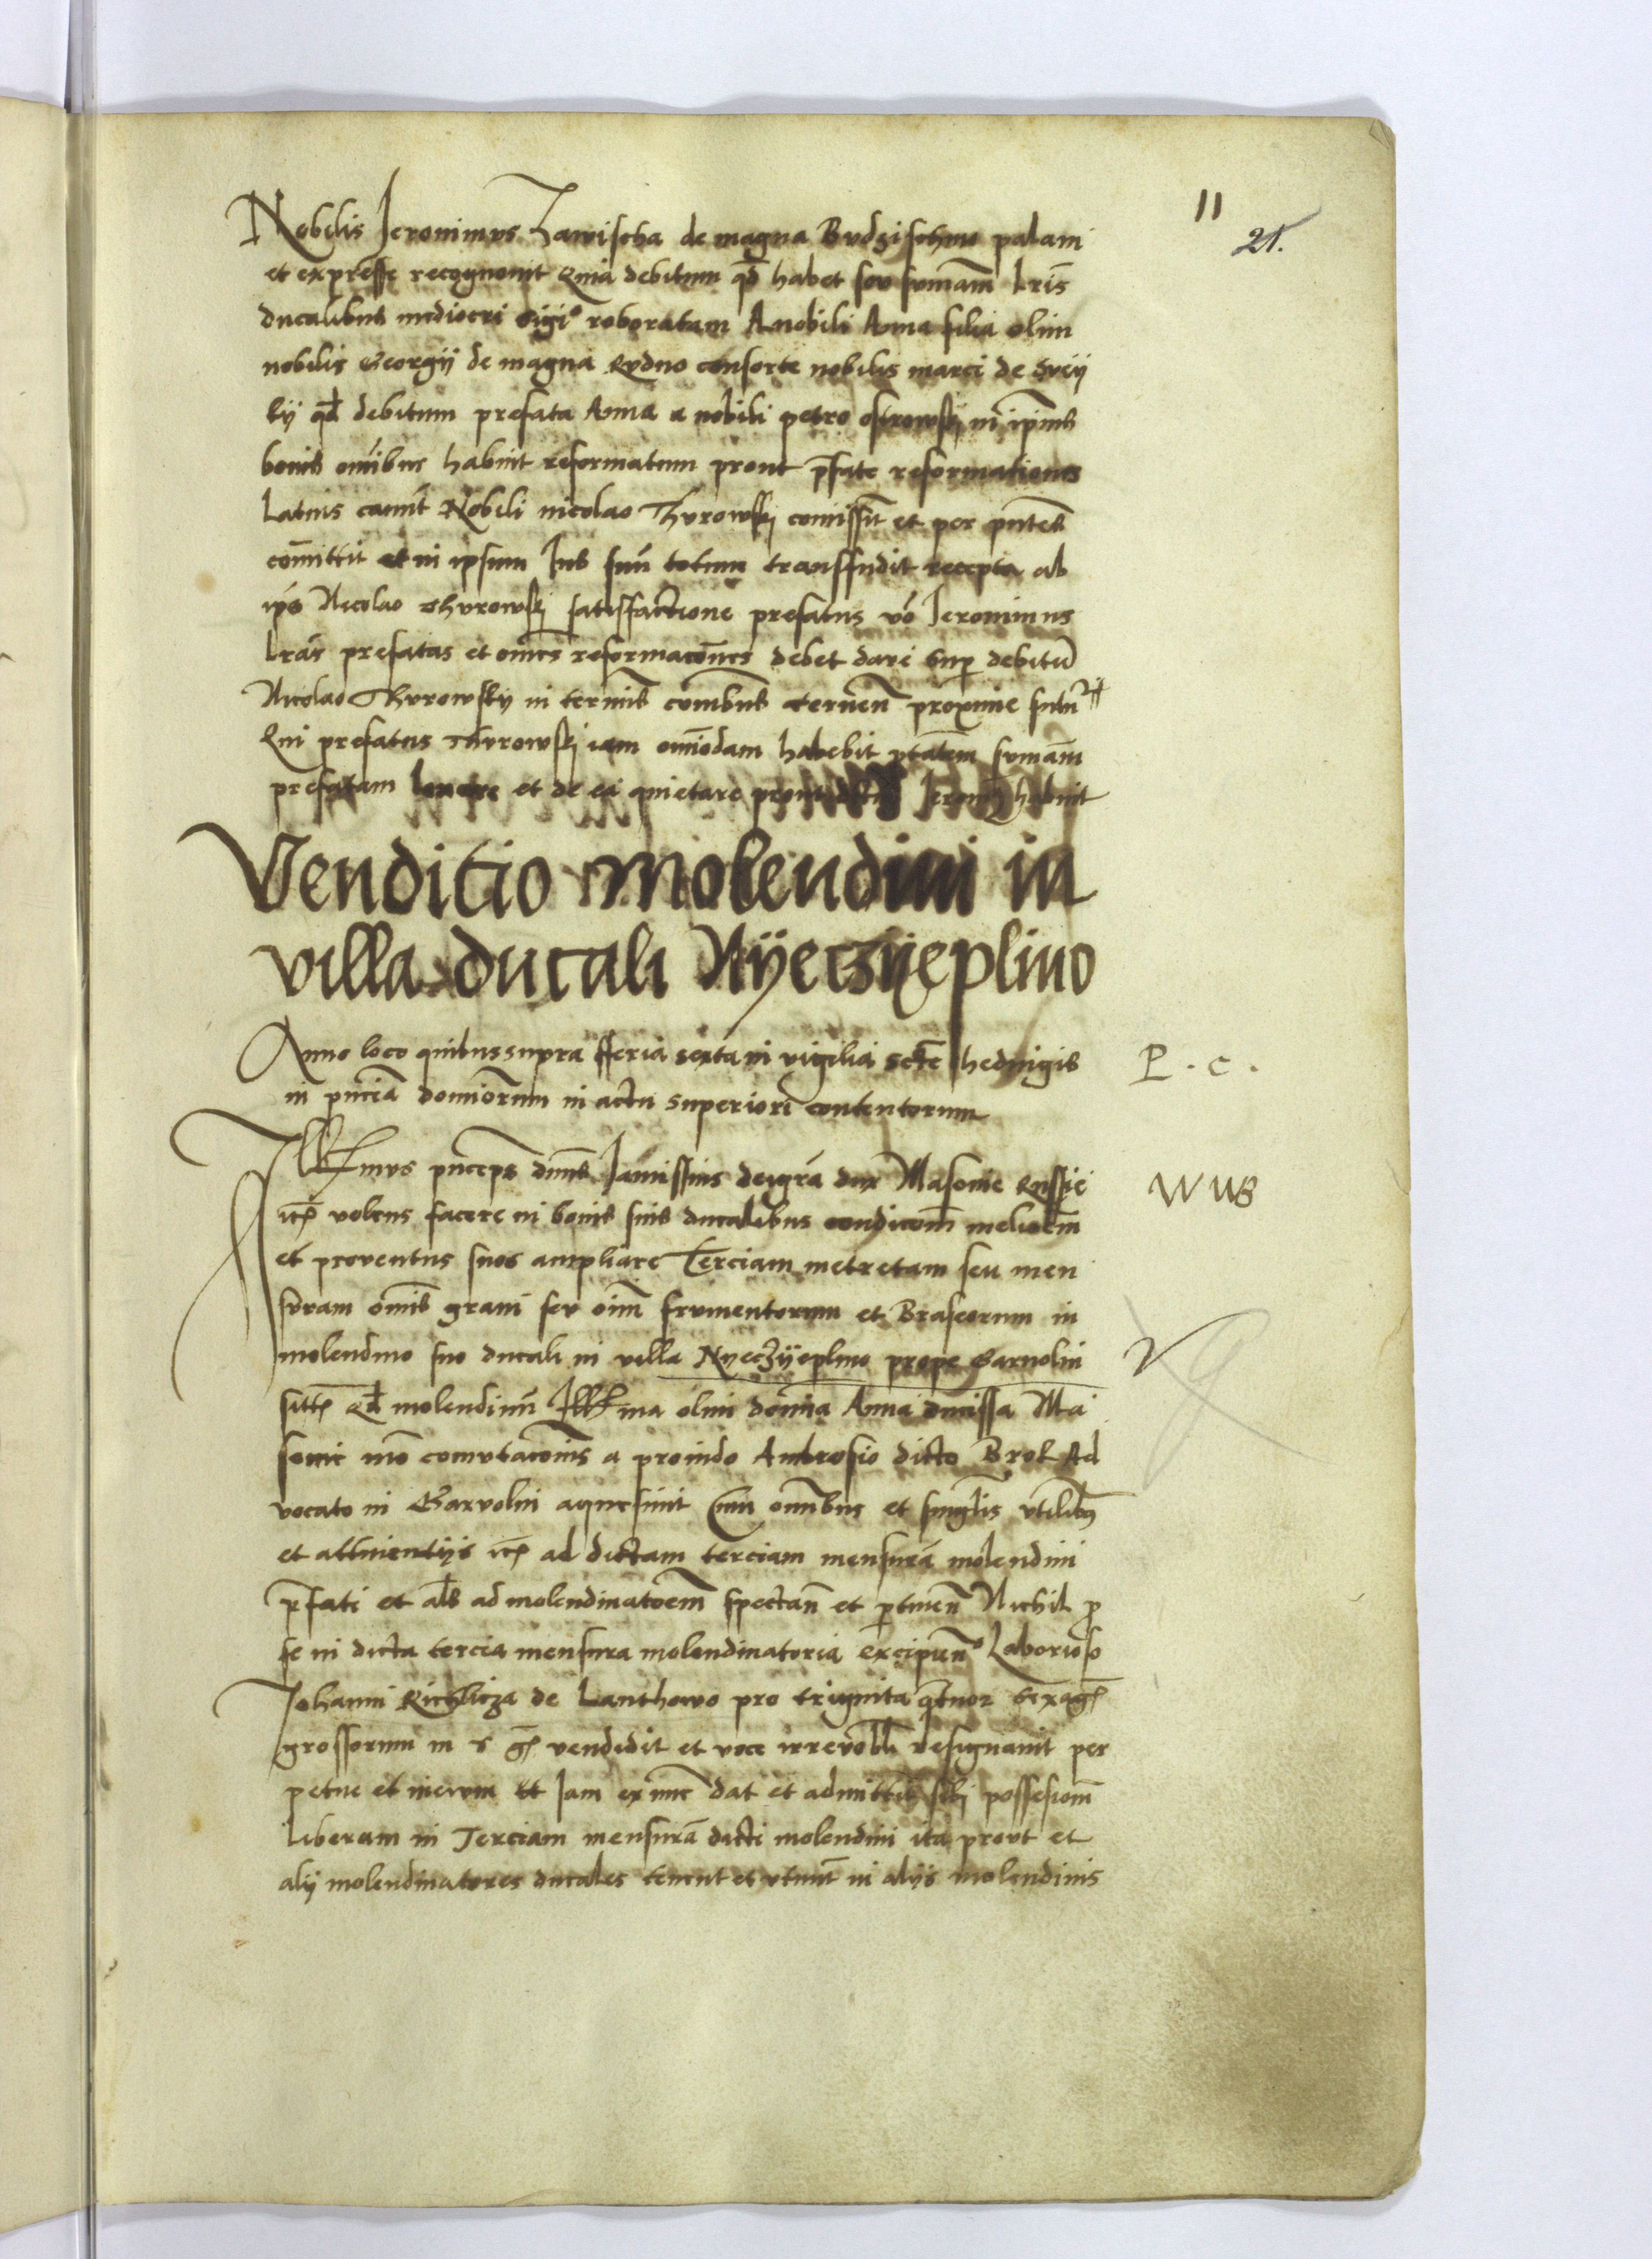 11
21.
Nobilis Jeronimus Zawischa de magna Budzischino palam
et expresse recognovit Quia debitum qd habet seu sumam lris
ducalibus mediocri sigi roboratam A nobili Anna filia olim
nobilis Georgii de magna Rudno consorte nobilis marci de
qd debitum prefata Anna a nobili petro ostrowskj in ipius
bonis omibus habuit reformatum prout pfate reformationes
Latius canut Nobili nicolao Thurowskj comissit et per pntes
comittit et in ipsum Jus suu totum transfudit recepta ab
ipo Nicolao Thurowskj satisfactione prefatus vo Jeronimus
lras prefatas et omes reformacones debet dare sup debitu
Nicolao Thurowsky in termis comibus Cernen proxime futur
Qui prefatus Thurowskj iam omiodam habebit ptatem sumam
prefatam levare et de ea quietare prout dictus Jeronim habuit
Venditio Molendini in
villa ducali Nyeczyeplino
Anno loco quibus supra fferia sexta in vigilia scte hedvigis
in pncia dominorum in actu superiori contentorum
P . c .
Illmus princeps dnus Janussius dei gra dux Masovie Russie
WUB
etc volens facere in bonis suis ducalibus condicom meliorem
et proventus suos ampliare Terciam metretam seu men
suram omis grani seu oim frumentorum et Braseorum in
molendino suo ducali in villa Nyeczyeplino prope Garvolin
sitte Qd molendinu Illma olim domina Anna ducissa Ma
sovie mo comutaconis a provido Ambrosio dicto Brol Ad
vocato in Garvolin aquesivit Cum omibus et singlis utilitb
et attinentiis etc ad dictam terciam mensura molendini
pfati et als ad molendinatorem spectan et ptinen Nichil p
se in dicta tercia mensura molendinatoria excipien Laborioso
Johanni Richlicza de Lanthowo pro triginta qtuor sexag
grossorum in vendidit et voce irrevobli resignavit per
petue et in evum Et Jam ex nunc dat et admittit sibj possesionem
liberam in Terciam mensura dicti molendini ita prout et
alii molendinatores ducales tenent et utunt in aliis molendinis